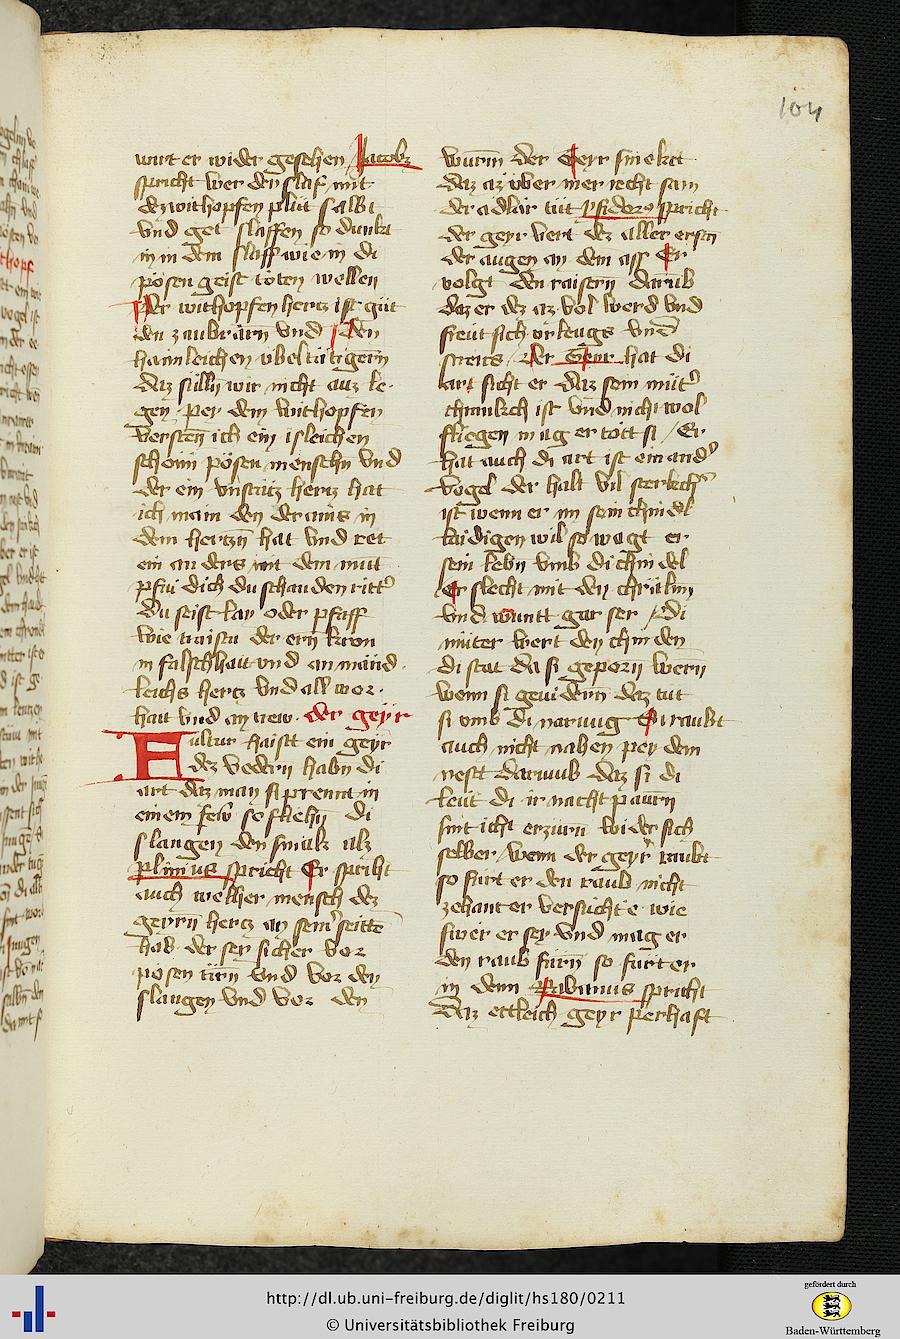 104
wirt er wider gesehen Jacobz
spricht wer den slaf mit
dez withopfen plut salbt
vnd get slaffen so dunkt
in in dem slaff wie in di
pösen geist töten wellen
Der withopfen hertz ist güt
den zaubrärn vnd den
haimleichen vbeltätigern
daz süllij wir nicht auz le
gen per dem withopfen
versten ich ein isleichen
schonn pösen menschn vnd
der ein vnstätz hertz hat
ich main den der ains in
dem hertzn hat vnd ret
ein anders mit dem mut
pfui dich du schanden ritter
du seist lay oder pfaff
wie traistu der ern kron
in falschhait vnd an mänd
leichs hertz vnd all wor
hait vnd an trew. der geyr
Vultur haisst ein geyr
dez vedern habn di
art daz man si prennt in
einem fewr so fliehn di
slangen den smak alz
Plinius spricht Er spricht
auch welher mensch dez
geyrn hertz an seiner seitten
hab der sey sicher vor
pösen tirn vnd vor den
slangen vnd vor den
würm der Geyr smekt
daz az vber mer recht sam
der adlar tüt ysidorus spricht
der geyr vert dez aller ersten
der augen an dem ass Er
volgt den raisern darub
daz er dez az vol werd vnd
freut sich vrleugs vnd
streits. der Geyr hat di
art sicht er daz sein müter
chrankch ist vnd nicht wol
fliegen mag er tött si / Er
hat auch di art ist ein ander
vogel der halt vil sterkcher
ist wenn er im sein chindel
laidigen wil so wagt er
sein lebn vmb di chindel
Er slecht mit den chrälln
vnd wuntt gar ser / di
müter wert den chinden
di stat da si geporn wern
wenn si gevidernt daz tut
si vmb di narung Er raubt
auch nicht nahen pey dem
nestt darumb daz si di
leut di ir nachtpaurn
sint icht erzürn wider sich
selber / wenn der geyr raubt
so fürt er den raub nicht
zehant er versücht e wie
swer er sey vnd mag er
den raub fürn so fürt er
in denn Rabanus spricht
daz ettleich geyr perhaft
http://dl.ub.uni-freiburg.de/diglit/hs180/0211
© Universitätsbibliothek Freiburg
gefördert durch
Baden-Württemberg